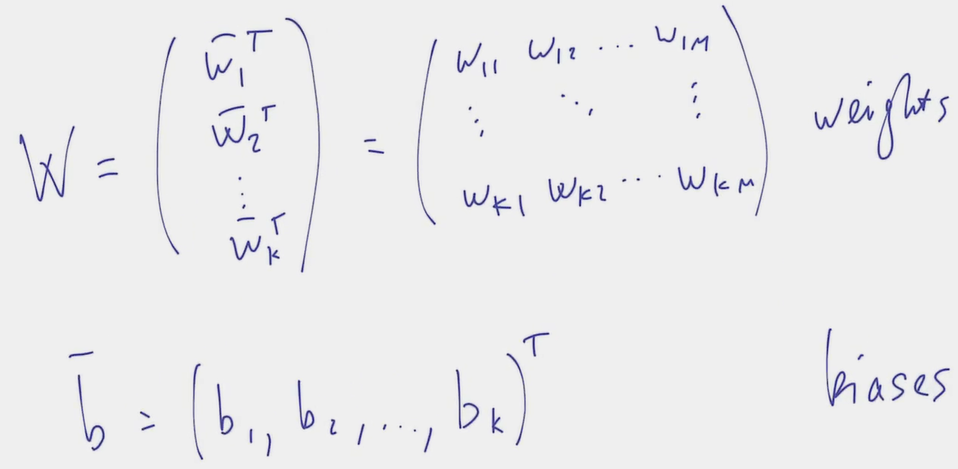 W = ( w̄₁ᵀ w̄₂ᵀ ⋮ w̄ₖᵀ ) = ( w₁₁ w₁₂ ⋯ w₁M ⋮ ⋱ ⋮ wₖ₁ wₖ₂ ⋯ wₖM ) weights
b̄ = (b₁, b₂, ..., bₖ)ᵀ biases